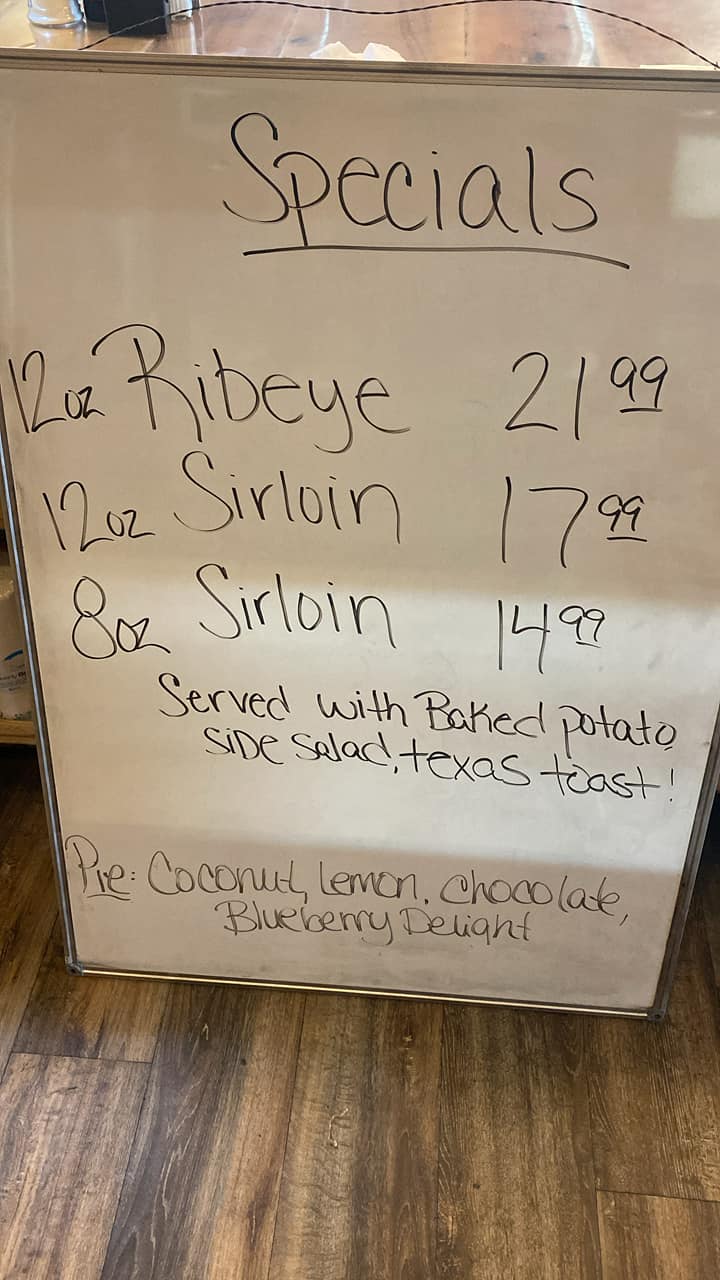 Specials
12oz Ribeye 21 99
12oz Sirloin 17 99
8oz Sirloin 14 99
Served with Baked potato,
side salad, texas toast!
Pie: Coconut, Lemon, chocolate,
Blueberry Delight